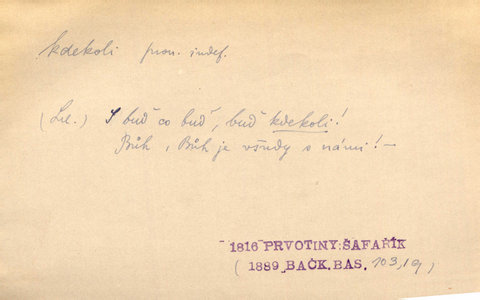 kdekoli pron. indef.
(Lil.) I buď co buď, buď kdekoli!
Bůh, Bůh je všudy s námi! —
1816 PRVOTINY: ŠAFAŘÍK
(1889 BAČK. BÁS. 103,19)